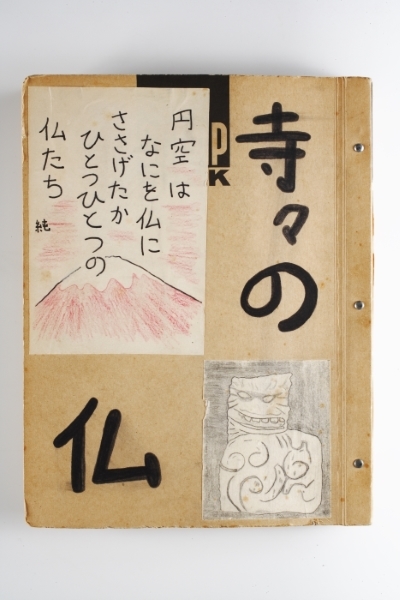 寺々の
仏
円空は
なにを仏に
ささげたか
ひとつひとつの
仏たち
純
P
K